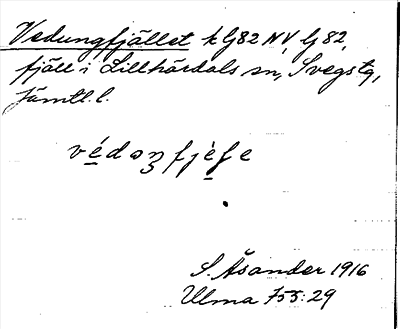 Vedungfjället k G82 NV, G 82,
fjäll i Lillhärdals sn, Svegs tg,
Jämtl. l.
védəŋfjèļe
S. Åsander 1916
Ulma 755:29